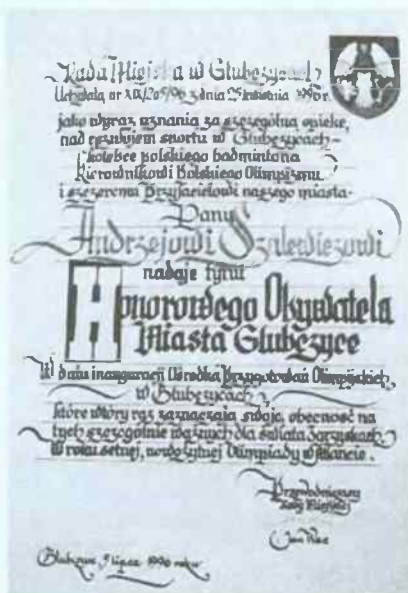 Rada Miejska w Głubczycach
Uchwałą nr XIX/205/96 z dnia 25 kwietnia 1996 r.
jako wyraz uznania za szczególną opiekę,
nad rozwojem sportu w Głubczycach –
kolebce polskiego badmintona
Kierownikowi Polskiego Olimpizmu
i szczeremu Przyjacielowi naszego miasta –
Panu
Andrzejowi Szalewiczowi
nadaje tytuł
Honorowego Obywatela
Miasta Głubczyce
W dniu inauguracji Ośrodka Przygotowań Olimpijskich,
w Głubczycach,
które wtóry raz zaznaczają swoją obecność na
tych szczególnie ważnych dla świata Igrzyskach
W roku setnej, nowożytnej Olimpiady w Atlancie.
Przewodniczący
Rady Miejskiej
Jan Wac
Głubczyce, lipca 1996 roku